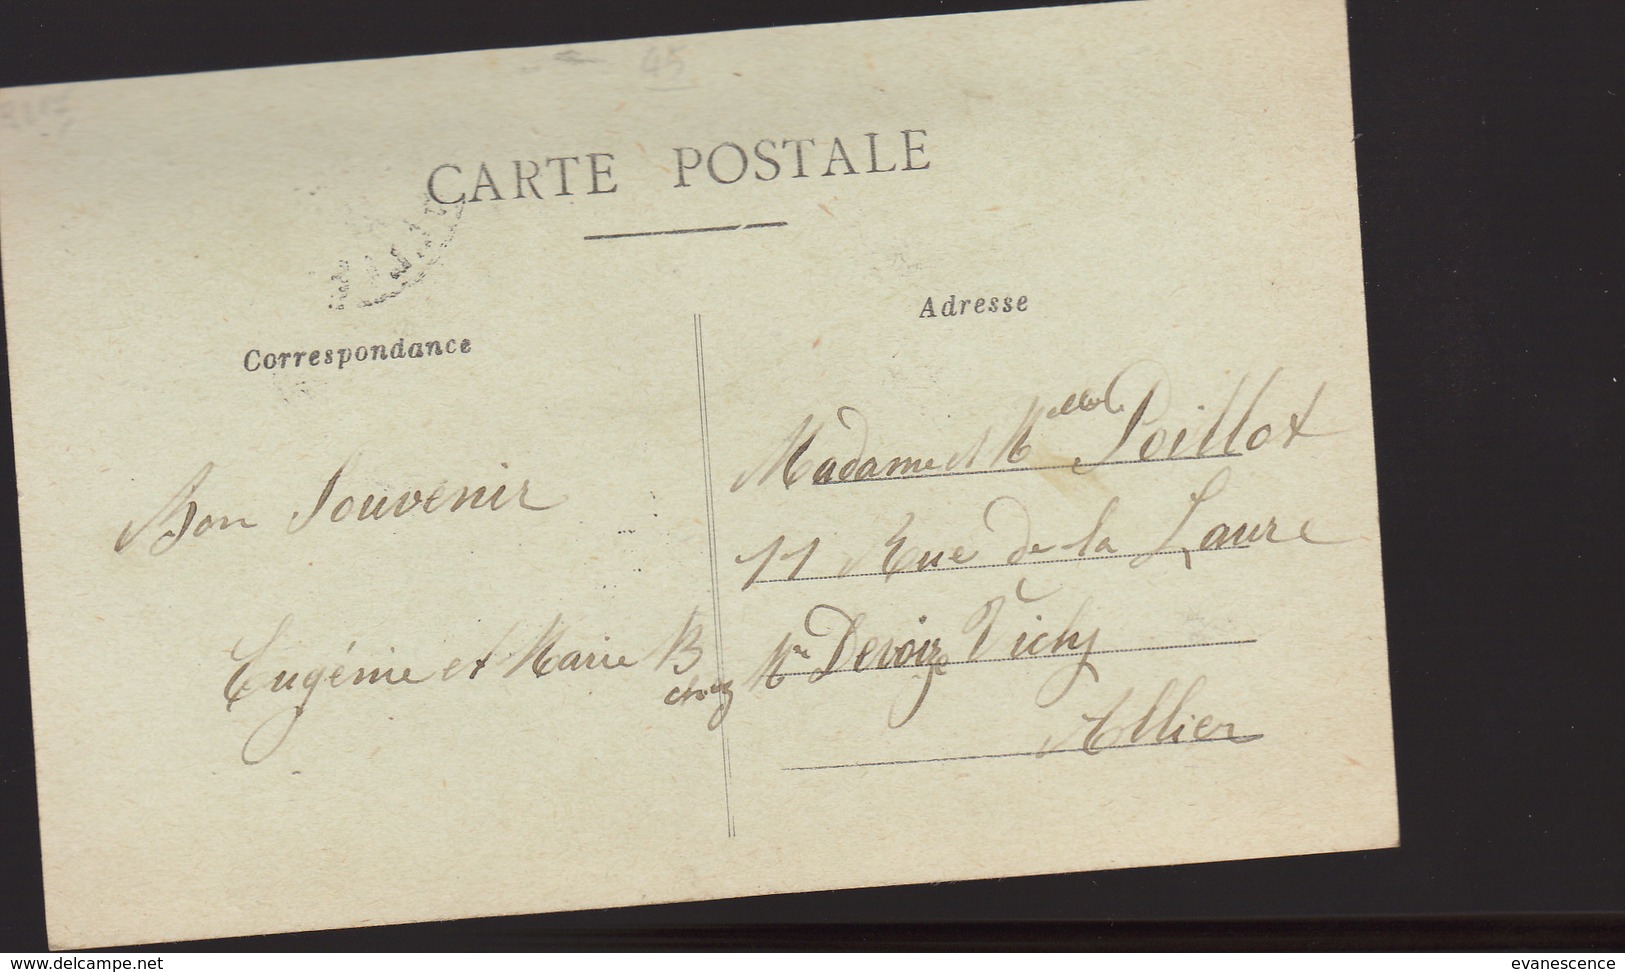 45
CARTE POSTALE
Correspondance
Adresse
Bon Souvenir
Eugénie et Marie B
Madame et Melle Poillot
11 Rue de la Laure
chez Mr Devoize Vichy
Allier
www.delcampe.net
evanescence